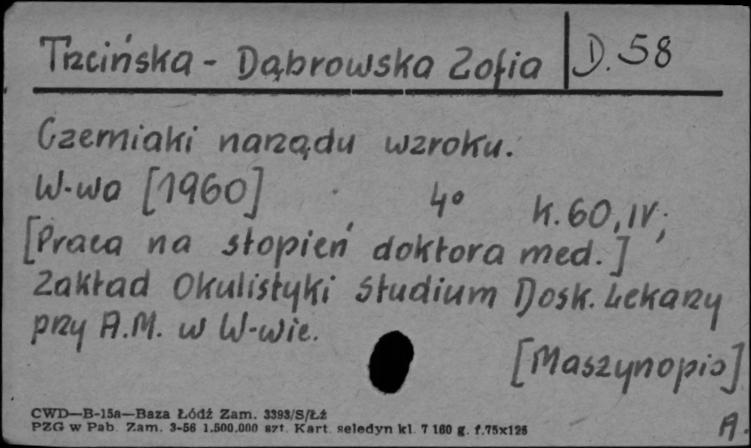 Trzcińska - Dąbrowska Zofia D.58
Czerniaki narządu wzroku.
W-wa [1960] 4° k.60, IV;
[Praca na stopień doktora med.]
Zakład Okulistyki Studium Dosk. Lekarzy
przy A.M. w W-wie.
[Maszynopis]
CWD—B-15a—Baza Łódź Zam. 3393/S/Łź
PZG w Pab. Zam. 3-56 1.500.000 szt. Kart. seledyn kl. 7 160 g. f.75x125
A.